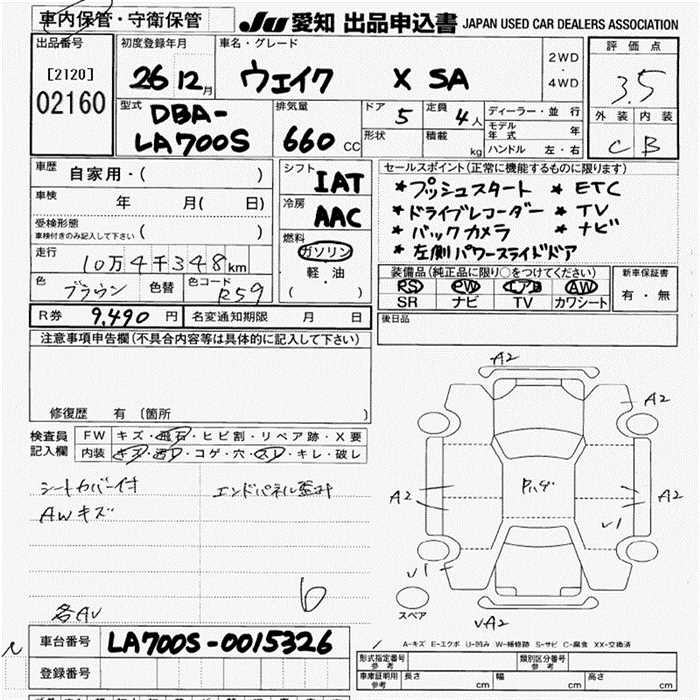 車内保管・守衛保管
JU 愛知 出品申込書 JAPAN USED CAR DEALERS ASSOCIATION
出品番号
[2120]
02160
初度登録年月
26 12月
車名・グレード
ウェイク X SA
2WD
・
4WD
評価点
3.5
外装 内装
C B
型式
DBA-
LA700S
排気量
660 CC
ドア 5
形状
定員 4人
積載 kg
ディーラー・並行
モデル年式 年
ハンドル 左・右
車歴
自家用・( )
車検
年 月( 日)
受検形態
車検付きのみ記入して下さい ( )
走行
10万4千348km
色
ブラウン
色替
色コード
R59
シフト
IAT
冷房
AAC
燃料
ガソリン
軽・油
( )
セールスポイント(正常に機能するものに限ります)
*プッシュスタート *ETC
*ドライブレコーダー *TV
*バックカメラ *ナビ
*左側パワースライドドア
装備品(純正品に限り○をつけてください)
PS PW エアB AW
SR ナビ TV カワシート
新車保証書
有・無
R券 9,490円
名変通知期限 月 日
後日品
注意事項申告欄(不具合内容等は具体的に記入して下さい)
修復歴 有 (箇所 )
検査員
記入欄
FW キズ・飛石・ヒビ割・リペア跡・X要
内装 キズ・汚レ・コゲ・穴・スレ・キレ・破レ
シートカバー付
AWキズ
エンドパネル歪み
6
A2
A2
A2
A2
A2
スペア
A-キズ E-エクボ U-凹み W-補修跡 S-サビ C-腐食 XX-交換済
車台番号 LA700S-0015326
登録番号
形式指定番号
参考
類別区分番号
参考
車庫証明用
参考
長さ cm
幅 cm
高さ cm